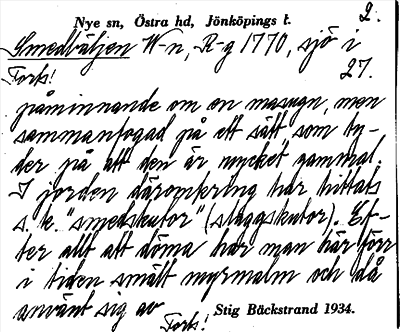 Nye sn, Östra hd, Jönköpings l. 2.
Smedbäljen W-n, R-g 1770, sjö i
Forts! 27.
påminnande om en masugn, men
sammanfogad på ett sätt som ty-
der på att den är mycket gammal.
I jorden däromkring har hittats
s. k. "smedskutor" (slaggskutor). Ef-
ter allt att döma har man här förr
i tiden smält myrmalm och då
använt sig av
Forts! Stig Bäckstrand 1934.